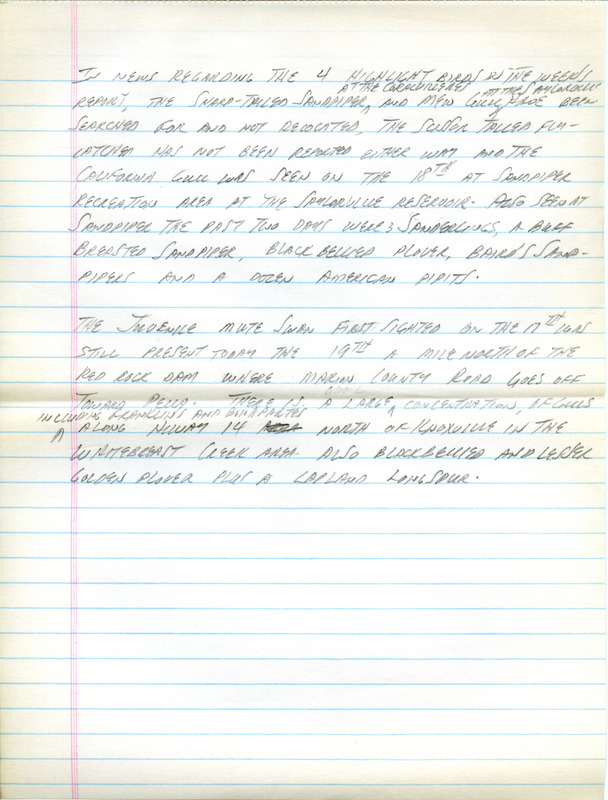 IN NEWS REGARDING THE 4 HIGHLIGHT BIRDS IN THE WEEKS
AT THE CORDILLERES AT THE SAYLORVILLE
REPORT, THE SHARP-TAILED SANDPIPER, AND MEW GULL, HAVE BEEN
SEARCHED FOR AND NOT RELOCATED, THE SCISSOR TAILED FLY-
CATCHER HAS NOT BEEN REPORTED EITHER WAY AND THE
CALIFORNIA GULL WAS SEEN ON THE 18TH AT SANDPIPER
RECREATION AREA AT THE SAYLORVILLE RESERVOIR. ALSO SEEN AT
SANDPIPER THE PAST TWO DAYS WERE 3 SANDERLINGS, A BUFF
BREASTED SANDPIPER, BLACK BELLIED PLOVER, BAIRD'S SAND-
PIPERS AND A DOZEN AMERICAN PIPITS.
THE JUVENILE MUTE SWAN FIRST SIGHTED ON THE 17TH WAS
STILL PRESENT TODAY THE 19TH A MILE NORTH OF THE
RED ROCK DAM WHERE MARION COUNTY ROAD GOES OFF
TOWARD PELLA. THERE IS A LARGE CONCENTRATION, OF GULLS
INCLUDING FRANKLINS AND BONAPARTES
ALONG HIWAY 14 NORTH OF KNOXVILLE IN THE
WHITEBREAST CREEK AREA ALSO BLACKBELLIED AND LESSER
GOLDEN PLOVER PLUS A LAPLAND LONGSPUR.